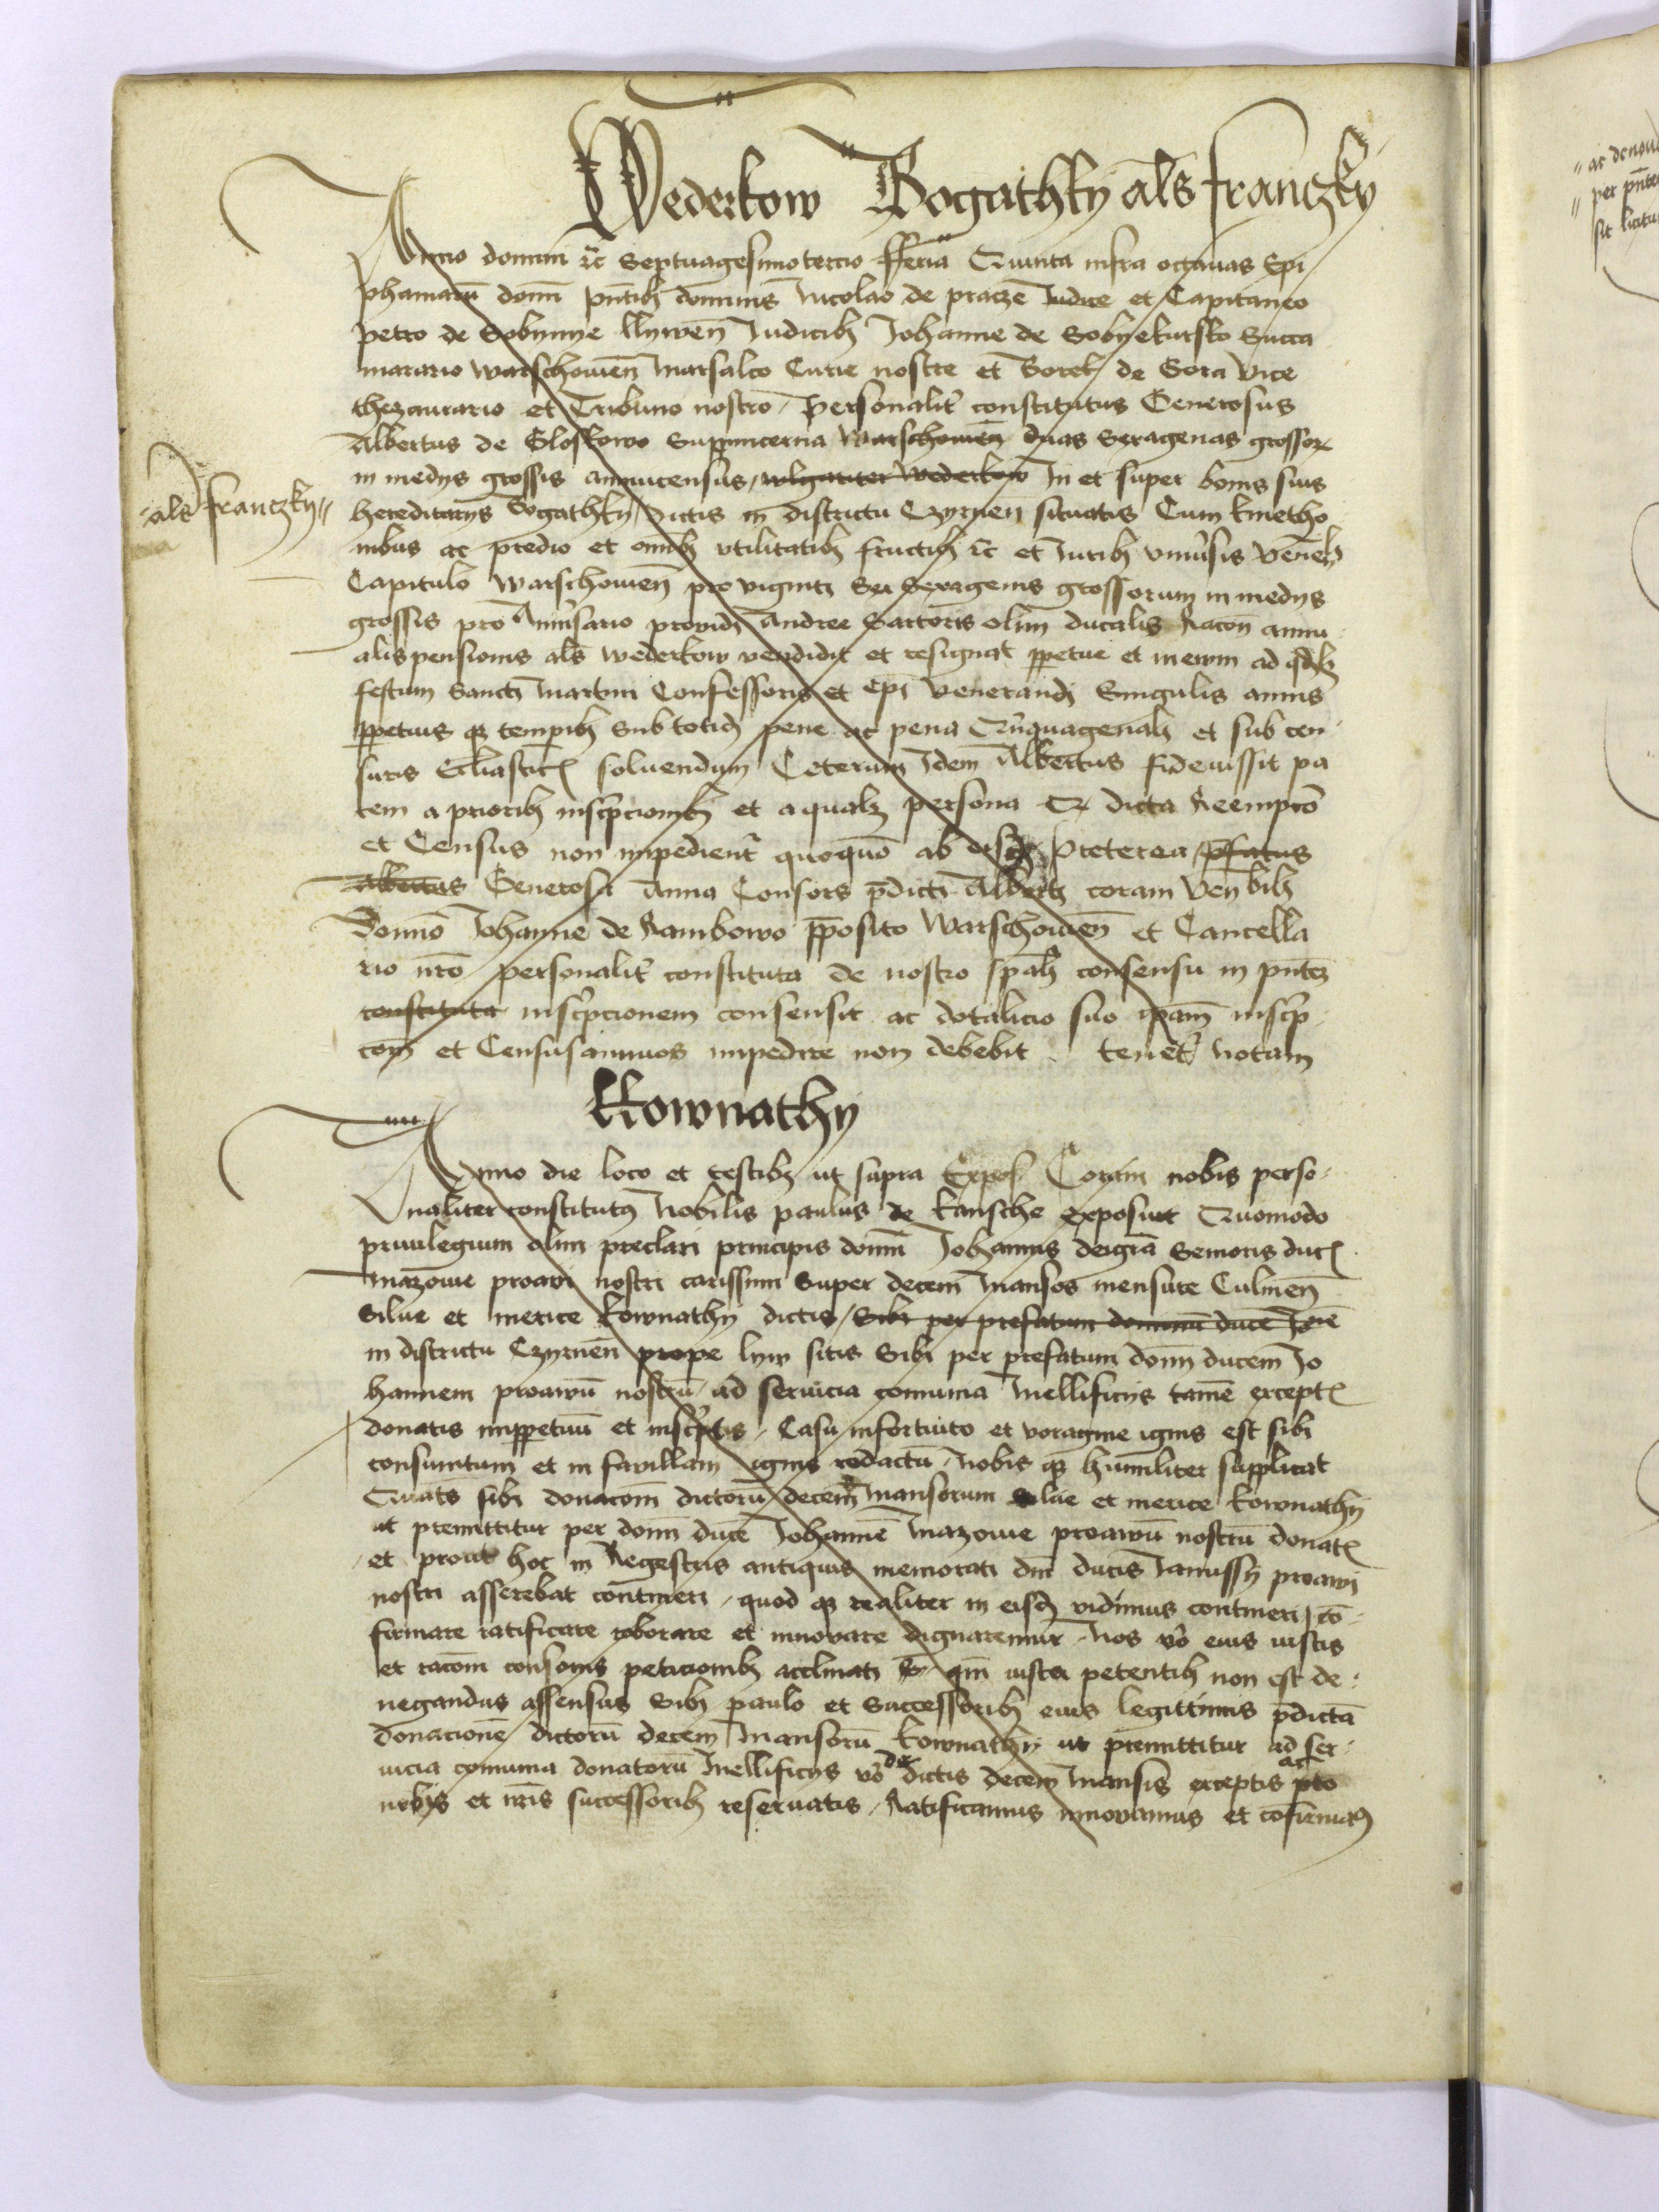 Wederkow Bogathky als franczky
Anno domini rc Septuagesimotercio fferia Quinta infra octauas Epi
phaniarū domī pntibȝ dominis Nicolao de pracze Iudice et Capitaneo
petro de Gobynye llywen Iudicibȝ Johanne de Sobyekursko Succa
merario Warschowien Marsalco Curie nostre et de Gora Vice
thezaurario et Tribuno nostro personalit constitutus Generosus
Albertus de Gloskowo Suppincerna Warschowien duas Sexagenas grossor
in medys grossis annuicensus wlgariter Wederkow In et super bonis suis
als franczky
hereditarys Bogathky dictis in districtu Czyrnen situatis Cum kmetho
nibus ac predio et omibȝ vtilitatibȝ fructibȝ rc et Iuribȝ vniusis
Capitulo Warschowien pro viginti Sex Sexagenis grossorum in medys
grossis pro Aniusario prouidi Andree Sartoris olim ducalis Racon annu
alis pensionis als wederkow vendidit et resignat ppetue et in ewm ad
festum Sancti Martini Confessoris et epi Venerandi Singulis annis
ppetuis qȝ tempibȝ Sub totid pene ac pena Qinquagenali et sub cen
suris soluendum Ceterum Idem Albertus fideiussit pa
cem a prioribȝ inscrpcionibȝ et a qualȝ persona dicta Reempcō
et Census non impedient quoquo Preterea pfatus
Albertus Generosa Anna Consors pdicti Alberti coram Venbilȝ
Domno Johanne de Rambowo pposito Warschowien et Cancella
rio nro personalit constituta de nostro consensu in pntē
constituta inscrpcionem consensit ac dotalicio suo ipam inscrp
com et Census annuos impedire non debebit tenet Notam
Kownathy
Anno die loco et testibȝ ut supra Coram nobis perso
naliter constitutȝ Nobilis paulus de kansche exposuit Quomodo
priuilegium olim preclari principis domī Johannis deigra Senioris duc
Mazouie proaui nostri carissimi Super decem Mansos mensure Culmen
Silue et merice kownathy dictis Sibi per prefatum dominū ducē
in districtu Czyrnen prope lyw sitis Sibi per prefatum domī ducem Jo
hannem proauū nostrū ad seruicia comunia Mellificys tamē except
donatis imppetuū et inscrptis Casu infortuito et voragine ignis est sibi
consumtum et in fauillam ignis redactū Nobis qȝ humiliter supplicat
Quats sibi donacom dictorū decem Mansorum silue et merice kownathy
ut premittitur per domī ducē Johannē Mazouie proauū nostrū donat
et prout hoc in Regestris antiquis memorati dni ducis Janussy proaui
nostri asserebat contineri quod qȝ realiter in eisd vidimus contineri cō
firmare ratificare roborare et innovare dignaremur Nos vo eius iustis
et racom consonis peticionibȝ acclinati qm iusta petentibȝ non est de
negandus assensus Sibi paulo et Successoribȝ eius legittimis pdictā
donacionē dictorū decem Mansorū kownathy ut premittitur ad ser
uicia comunia donatorū Mellificys vo de dictis decem Mansis exceptis ac pro
nobis et nris successoribȝ reseruatis Ratificamus innouamus et cofirmaȝ